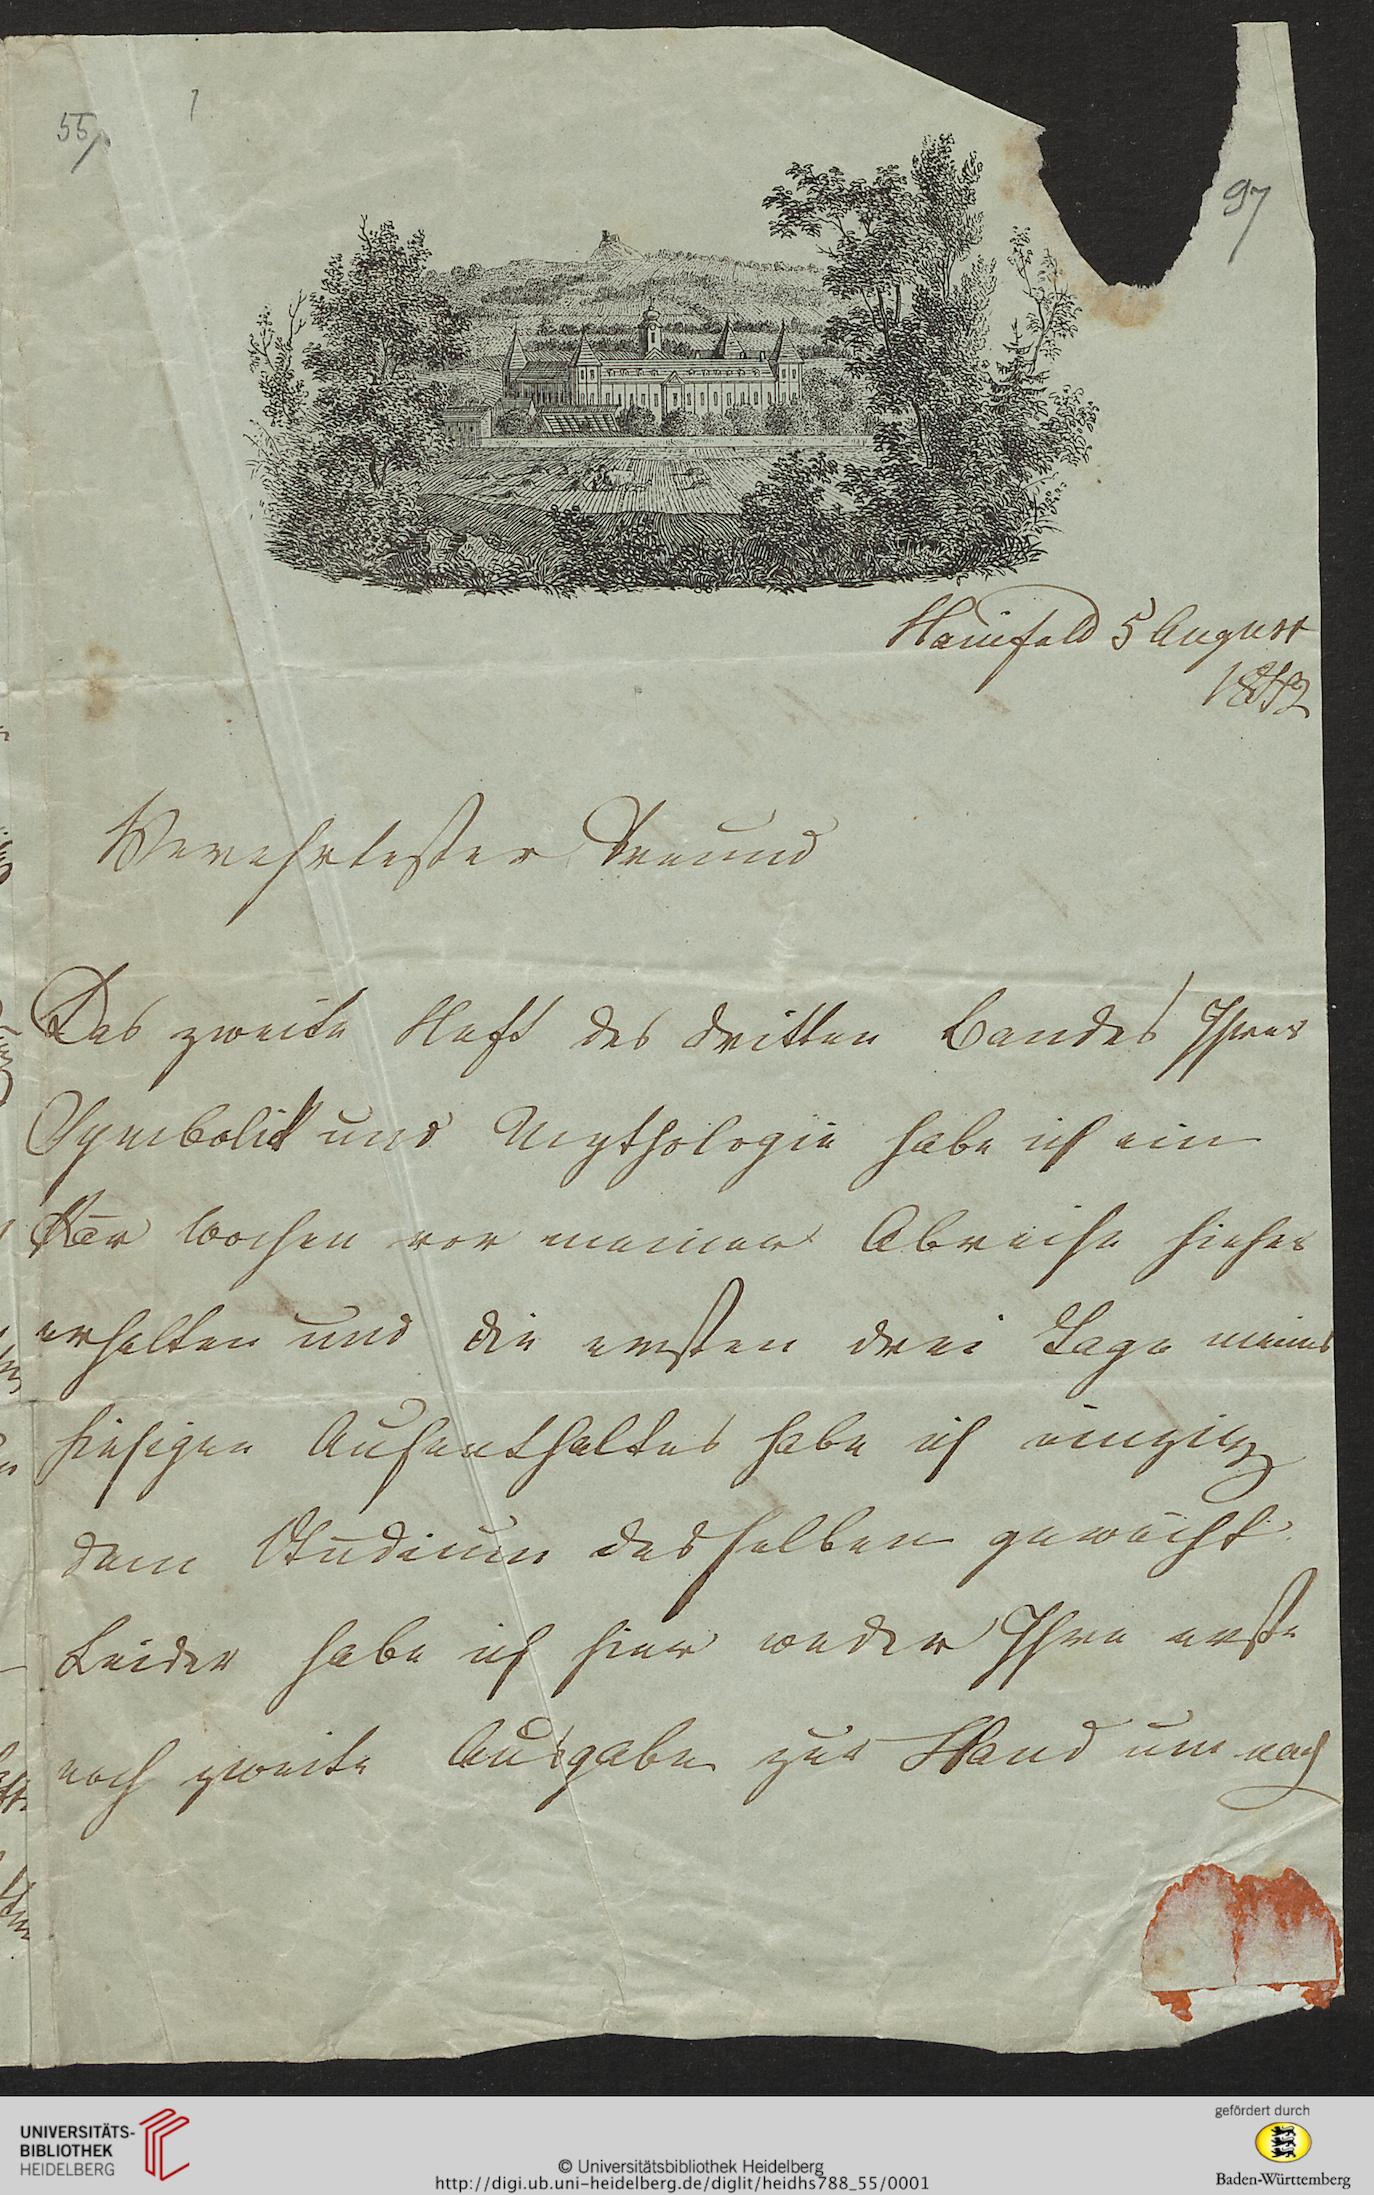 55.
1
97
Hainfeld 5 August
1842
Verehrtester Freund
Das zweite Heft des dritten Bandes Ihrer
Symbolik und Mythologie habe ich ein
Par Wochen vor meiner Abreise hieher
erhalten und die ersten drei Tage meines
hiesigen Aufenthaltes habe ich einzig
dem Studium desselben geweiht.
Leider habe ich hier weder Ihre erste
noch zweite Ausgabe zur Hand um nach
UNIVERSITÄTS-
BIBLIOTHEK
HEIDELBERG
© Universitätsbibliothek Heidelberg
http://digi.ub.uni-heidelberg.de/diglit/heidhs788_55/0001
gefördert durch
Baden-Württemberg